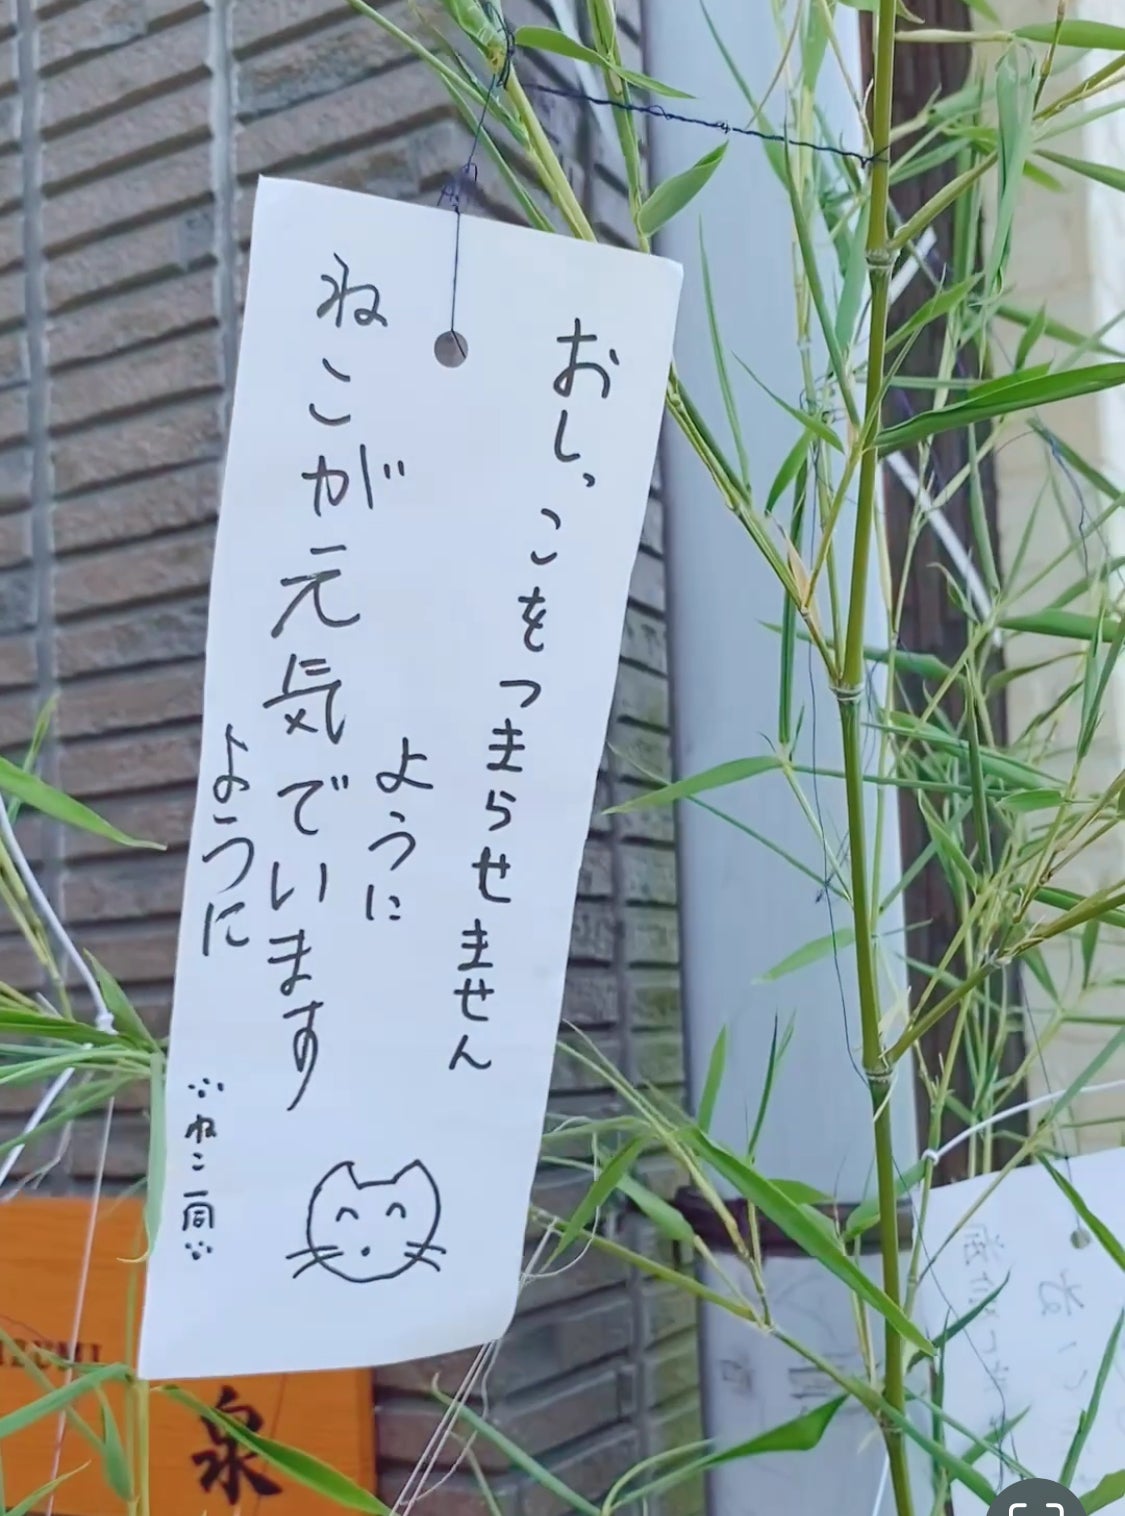 おしっこをつまらせません
ように
ねこが元気でいます
ように
ねこ一同
IZUMI
泉